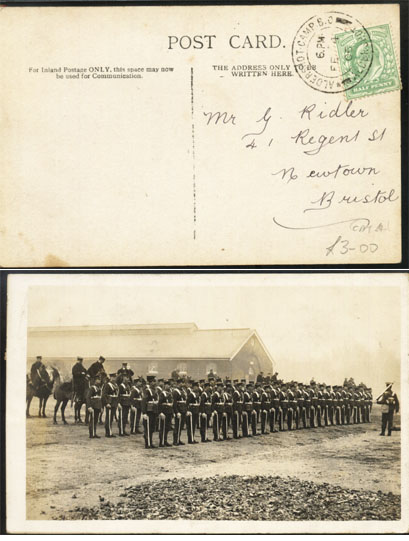 POST CARD.
For Inland Postage ONLY, this space may now
be used for Communication.
THE ADDRESS ONLY
WRITTEN HERE.
ALDERSHOT CAMP S.O.
6. PM
FE
HALF PENNY
Mr G. Ridler
41 Regent St
Newtown
Bristol
£3-00